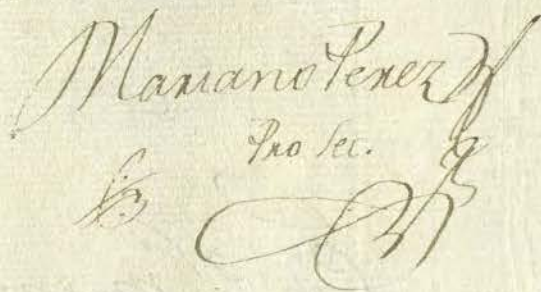 Mariano Perez
Pro Sec.